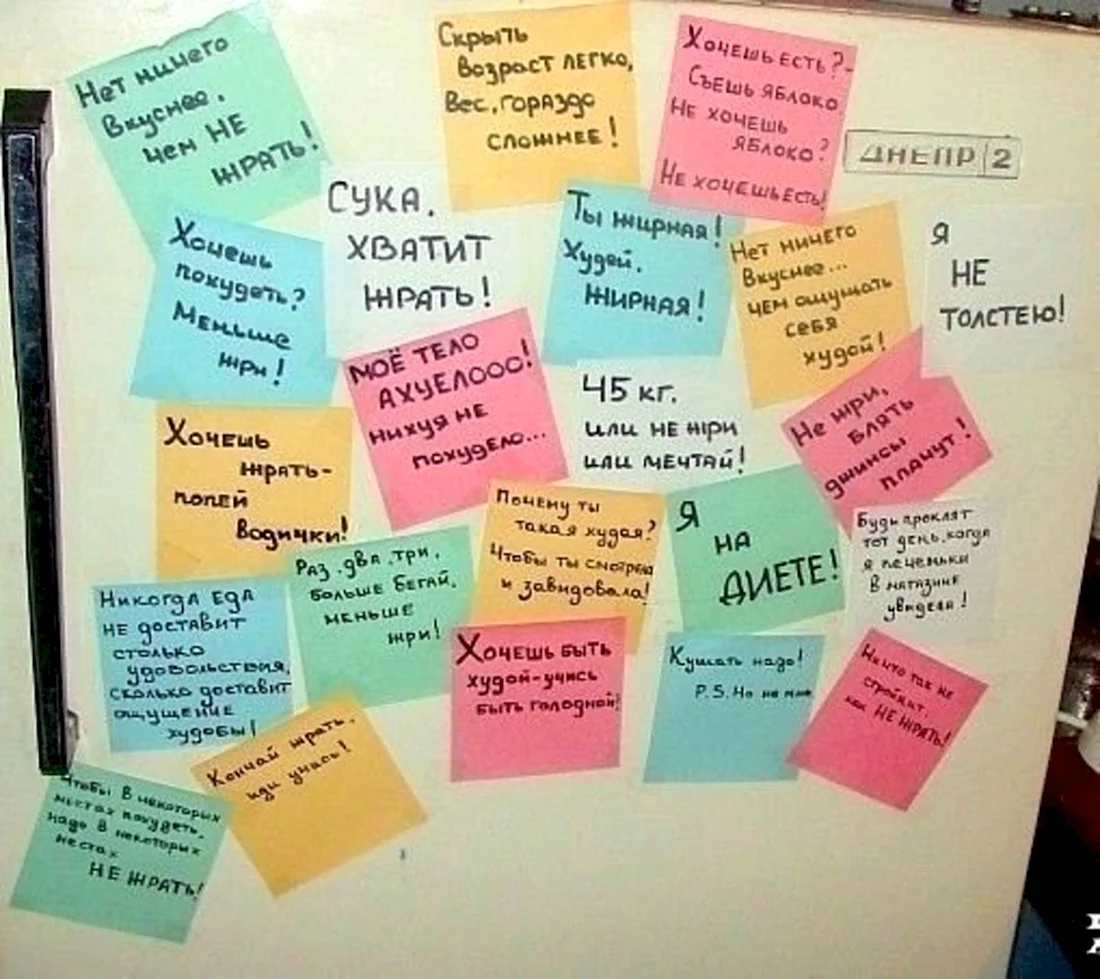 Нет ничего
вкуснее,
чем НЕ
ЖРАТЬ!
Скрыть
возраст легко,
Вес, гораздо
сложнее!
Хочешь есть?-
Съешь яблоко
Не хочешь
яблоко?
Не хочешь есть!
ДНЕПР 2
Хочешь
похудеть?
Меньше
жри!
СУКА,
ХВАТИТ
ЖРАТЬ!
Ты жирная!
Худей,
жирная!
Нет ничего
вкуснее...
чем ощущать
себя
худой!
Я
НЕ
ТОЛСТЕЮ!
МОЁ ТЕЛО
АХУЕЛООО!
нихуя не
похудело...
45 кг.
или не жри
или мечтай!
Не жри,
блять
джинсы
плачут!
Хочешь
жрать-
попей
водички!
Раз, два, три,
больше бегай,
меньше
жри!
Почему ты
такая худая?
Чтобы ты смотрела
и завидовала!
Я
НА
ДИЕТЕ!
Будь проклят
тот день, когда
я печеньки
в магазине
увидела!
Никогда еда
не доставит
столько
удовольствия,
сколько доставит
ощущение
худобы!
Хочешь быть
худой-учись
быть голодной!
Кушать надо!
P.S. Но не мне
Ничто так не
стройнит,
как НЕ ЖРАТЬ!
Кончай жрать,
иди учись!
Чтобы в некоторых
местах похудеть,
надо в некоторых
местах
НЕ ЖРАТЬ!